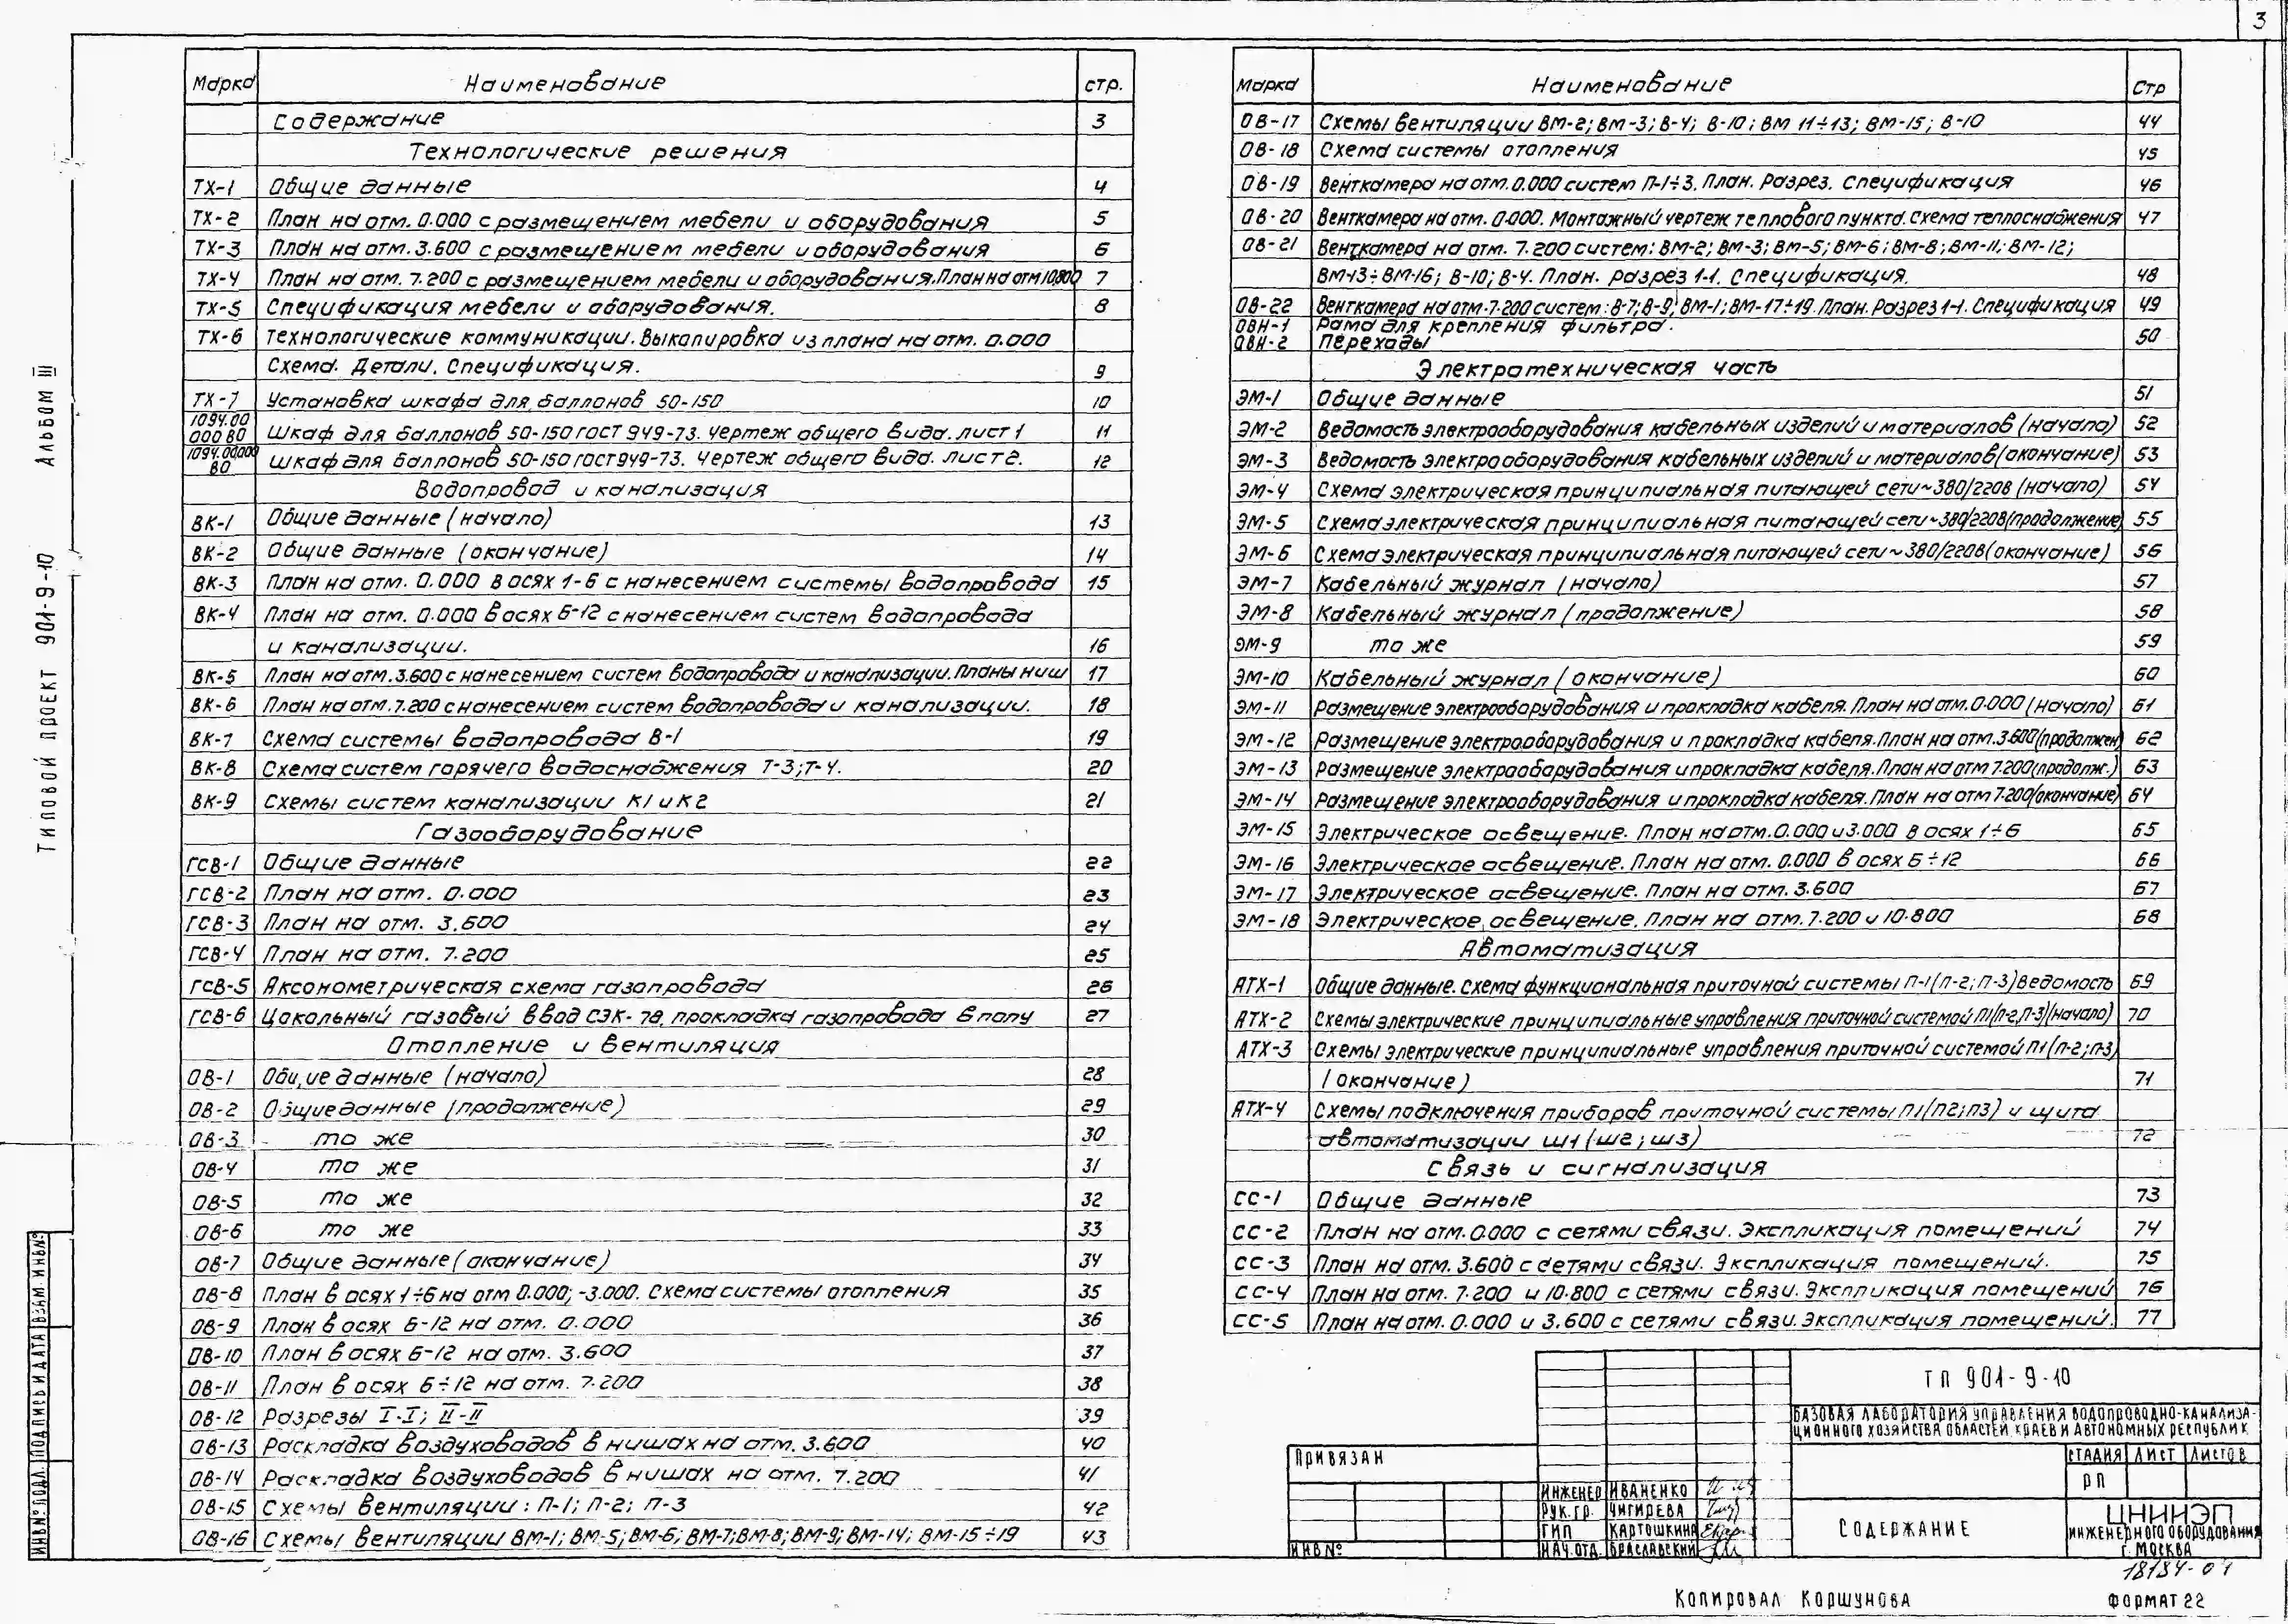 3
Марка Наименование стр.
Содержание 3
Технологические решения
ТХ-1 Общие данные 4
ТХ-2 План на отм. 0.000 с размещением мебели и оборудования 5
ТХ-3 План на отм. 3.600 с размещением мебели и оборудования 6
ТХ-4 План на отм. 7.200 с размещением мебели и оборудования. План на отм 10.800 7
ТХ-5 Спецификация мебели и оборудования. 8
ТХ-6 Технологические коммуникации. Выкопировка из плана на отм. 0.000
Схема. Детали. Спецификация. 9
ТХ-7 Установка шкафа для баллонов 50-150 10
1094.00 000 ВО Шкаф для баллонов 50-150 ГОСТ 949-73. Чертеж общего вида. лист 1 11
1094.00.000 ВО Шкаф для баллонов 50-150 ГОСТ 949-73. Чертеж общего вида. лист 2. 12
Водопровод и канализация
ВК-1 Общие данные (начало) 13
ВК-2 Общие данные (окончание) 14
ВК-3 План на отм. 0.000 в осях 1-6 с нанесением системы водопровода 15
ВК-4 План на отм. 0.000 в осях 6-12 с нанесением систем водопровода
и канализации. 16
ВК-5 План на отм. 3.600 с нанесением систем водопровода и канализации. Планы ниш 17
ВК-6 План на отм. 7.200 с нанесением систем водопровода и канализации. 18
ВК-7 Схема системы водопровода В-1 19
ВК-8 Схема систем горячего водоснабжения Т-3; Т-4. 20
ВК-9 Схемы систем канализации К1 и К2 21
Газооборудование
ГСВ-1 Общие данные 22
ГСВ-2 План на отм. 0.000 23
ГСВ-3 План на отм. 3.600 24
ГСВ-4 План на отм. 7.200 25
ГСВ-5 Аксонометрическая схема газопровода 26
ГСВ-6 Цокольный газовый ввод СЭК-78, прокладка газопровода в полу 27
Отопление и вентиляция
ОВ-1 Общие данные (начало) 28
ОВ-2 Общие данные (продолжение) 29
ОВ-3 то же 30
ОВ-4 то же 31
ОВ-5 то же 32
ОВ-6 то же 33
ОВ-7 Общие данные (окончание) 34
ОВ-8 План в осях 1÷6 на отм 0.000; -3.000. Схема системы отопления 35
ОВ-9 План в осях 6-12 на отм. 0.000 36
ОВ-10 План в осях 6-12 на отм. 3.600 37
ОВ-11 План в осях 6÷12 на отм. 7.200 38
ОВ-12 Разрезы I-I; II-II 39
ОВ-13 Раскладка воздуховодов в нишах на отм. 3.600 40
ОВ-14 Раскладка воздуховодов в нишах на отм. 7.200 41
ОВ-15 Схемы вентиляции: П-1; П-2; П-3 42
ОВ-16 Схемы вентиляции ВМ-1; ВМ-5; ВМ-6; ВМ-7; ВМ-8; ВМ-9; ВМ-14; ВМ-15÷19 43
Марка Наименование Стр
ОВ-17 Схемы вентиляции ВМ-2; ВМ-3; В-4; В-10; ВМ 11÷13; ВМ-15; В-10 44
ОВ-18 Схема системы отопления 45
ОВ-19 Венткамера на отм. 0.000 систем П-1÷3. План. Разрез. Спецификация 46
ОВ-20 Венткамера на отм. 0.000. Монтажный чертеж теплового пункта. Схема теплоснабжения 47
ОВ-21 Венткамера на отм. 7.200 систем: ВМ-2; ВМ-3; ВМ-5; ВМ-6; ВМ-8; ВМ-11; ВМ-12;
ВМ-13÷ВМ-16; В-10; В-4. План. разрез 1-1. Спецификация. 48
ОВ-22 Венткамера на отм. 7.200 систем: В-7; В-9; ВМ-1; ВМ-17÷19. План. Разрез 1-1. Спецификация 49
ОВН-1 Рама для крепления фильтра.
ОВН-2 Переходы 50
Электротехническая часть
ЭМ-1 Общие данные 51
ЭМ-2 Ведомость электрооборудования кабельных изделий и материалов (начало) 52
ЭМ-3 Ведомость электрооборудования кабельных изделий и материалов (окончание) 53
ЭМ-4 Схема электрическая принципиальная питающей сети ~380/220В (начало) 54
ЭМ-5 Схема электрическая принципиальная питающей сети ~380/220В (продолжение) 55
ЭМ-6 Схема электрическая принципиальная питающей сети ~380/220В (окончание) 56
ЭМ-7 Кабельный журнал (начало) 57
ЭМ-8 Кабельный журнал (продолжение) 58
ЭМ-9 то же 59
ЭМ-10 Кабельный журнал (окончание) 60
ЭМ-11 Размещение электрооборудования и прокладка кабеля. План на отм. 0.000 (начало) 61
ЭМ-12 Размещение электрооборудования и прокладка кабеля. План на отм. 3.600 (продолжен) 62
ЭМ-13 Размещение электрооборудования и прокладка кабеля. План на отм 7.200 (продолж.) 63
ЭМ-14 Размещение электрооборудования и прокладка кабеля. План на отм 7.200 (окончание) 64
ЭМ-15 Электрическое освещение. План на отм. 0.000 и 3.000 в осях 1÷6 65
ЭМ-16 Электрическое освещение. План на отм. 0.000 в осях 6÷12 66
ЭМ-17 Электрическое освещение. План на отм. 3.600 67
ЭМ-18 Электрическое освещение. План на отм. 7.200 и 10.800 68
Автоматизация
АТХ-1 Общие данные. Схема функциональная приточной системы П-1 (П-2; П-3) Ведомость 69
АТХ-2 Схемы электрические принципиальные управления приточной системой П1 (П-2, П-3) (начало) 70
АТХ-3 Схемы электрические принципиальные управления приточной системой П1 (П-2; П-3)
(окончание) 71
АТХ-4 Схемы подключения приборов приточной системы П1 (П2; П3) и щита
автоматизации Ш1 (Ш2; Ш3) 72
Связь и сигнализация
СС-1 Общие данные 73
СС-2 План на отм. 0.000 с сетями связи. Экспликация помещений 74
СС-3 План на отм. 3.600 с сетями связи. Экспликация помещений. 75
СС-4 План на отм. 7.200 и 10.800 с сетями связи. Экспликация помещений 76
СС-5 План на отм. 0.000 и 3.600 с сетями связи. Экспликация помещений. 77
ТП 901-9-10
БАЗОВАЯ ЛАБОРАТОРИЯ УПРАВЛЕНИЯ ВОДОПРОВОДНО-КАНАЛИЗА-
ЦИОННОГО ХОЗЯЙСТВА ОБЛАСТЕЙ, КРАЕВ И АВТОНОМНЫХ РЕСПУБЛИК
СТАДИЯ ЛИСТ ЛИСТОВ
РП
ПРИВЯЗАН
ИНВ №
ИНЖЕНЕР ИВАНЕНКО
РУК. ГР. ЧИГИРЕВА
ГИП КАРТОШКИНА
НАЧ. ОТД. БРАСЛАВСКИЙ
СОДЕРЖАНИЕ
ЦНИИЭП
ИНЖЕНЕРНОГО ОБОРУДОВАНИЯ
Г. МОСКВА
КОПИРОВАЛ КОРШУНОВА
ФОРМАТ 22
ТИПОВОЙ ПРОЕКТ 901-9-10 АЛЬБОМ III
ИНВ № ПОДЛ. ПОДПИСЬ И ДАТА ВЗАМ ИНВ №